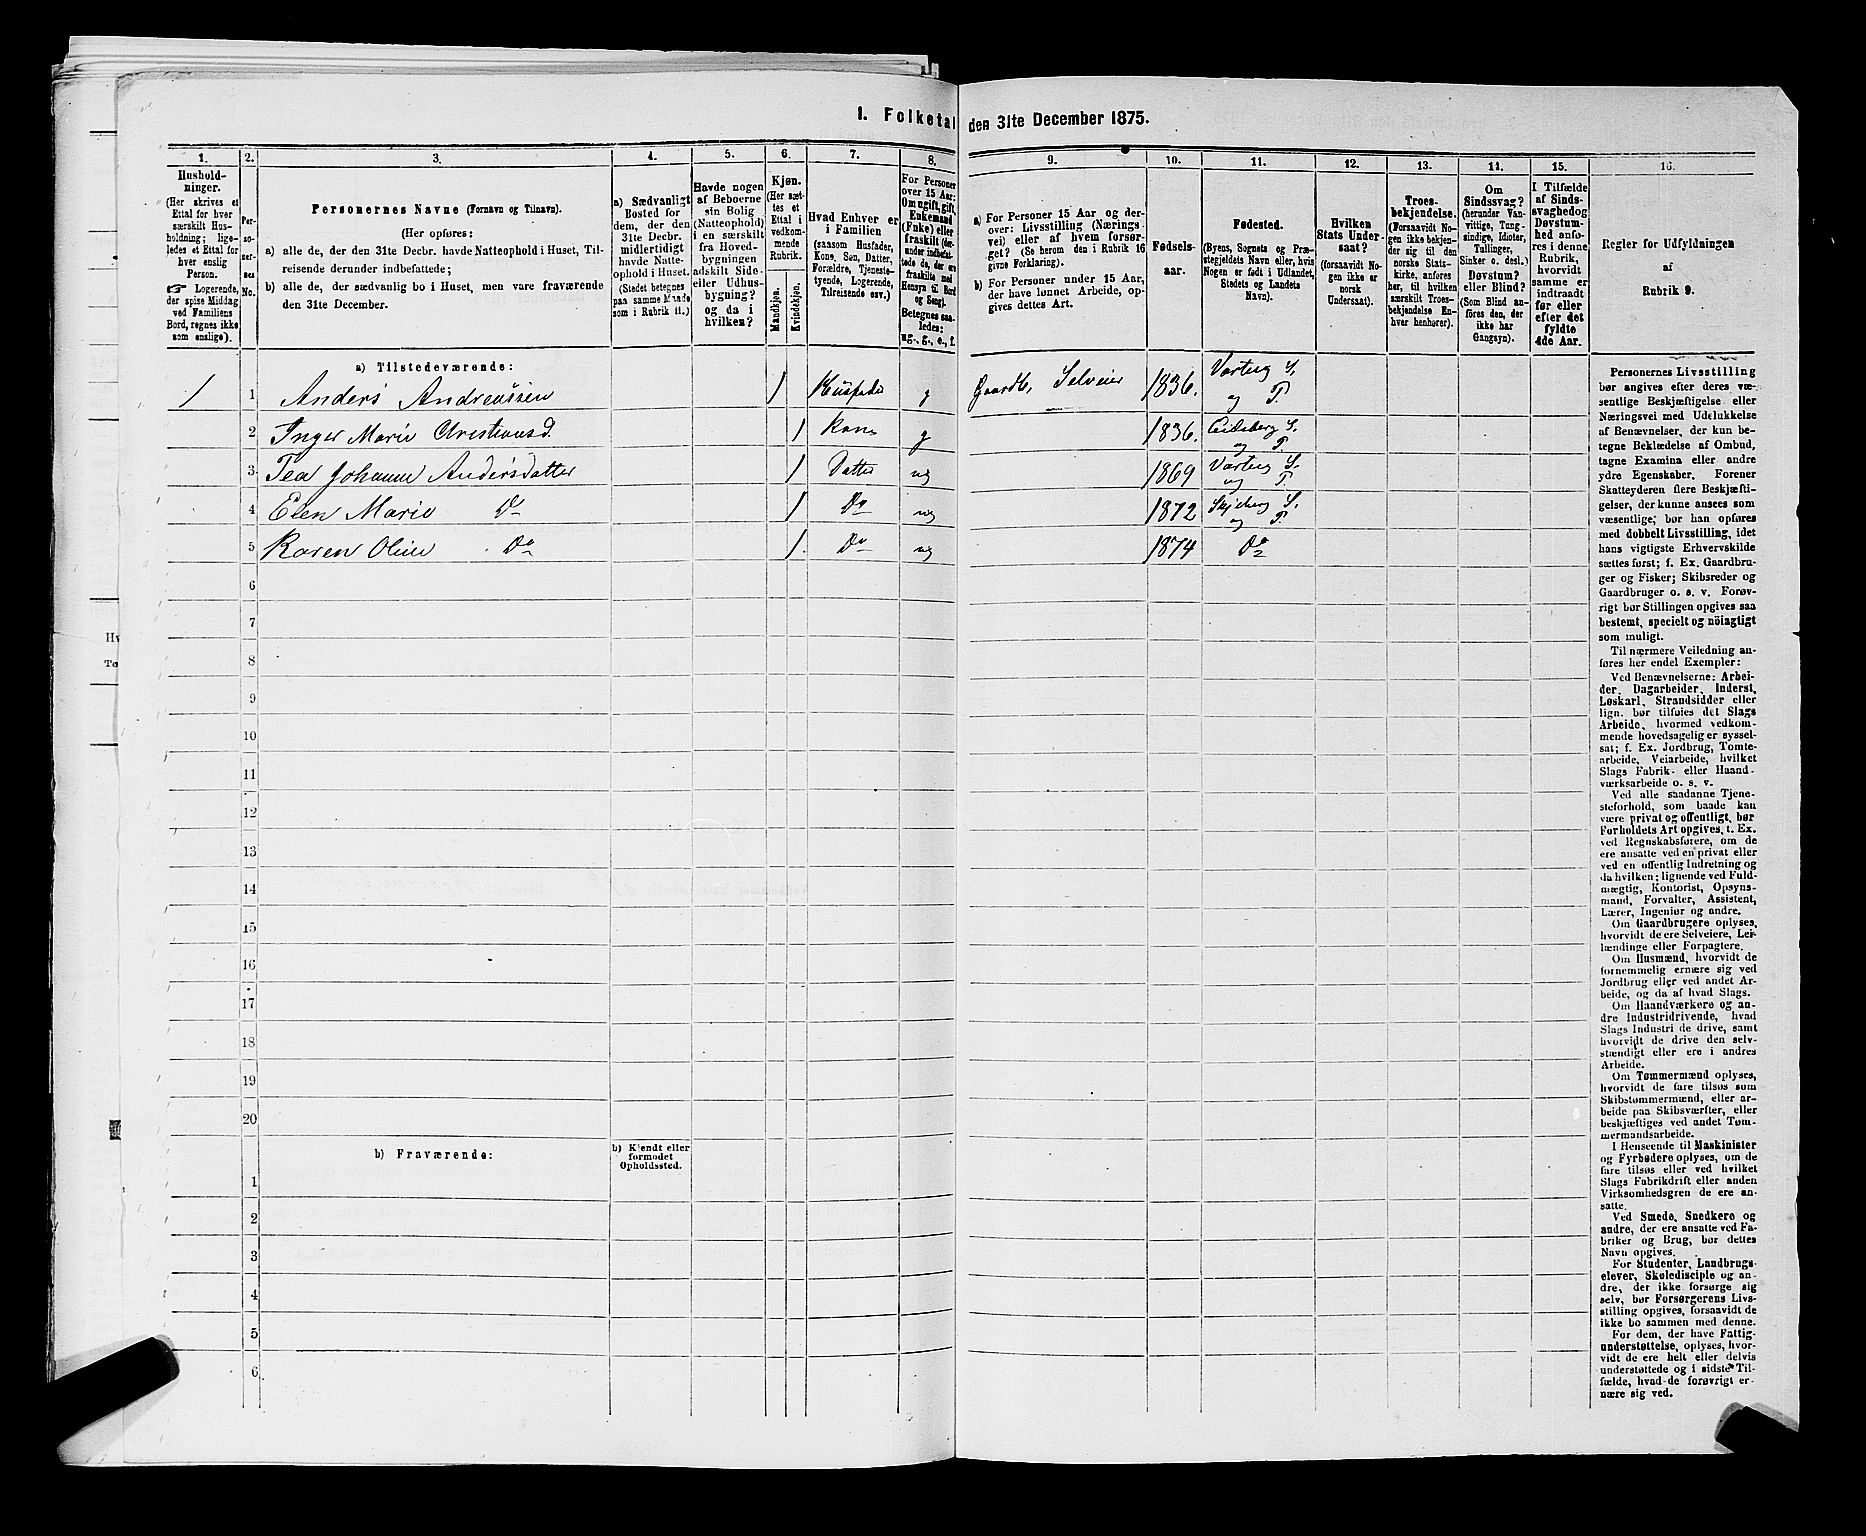 I. Folketal den 31te December 1875.
1. 2. 3. 4. 5. 6. 7. 8. 9. 10. 11. 12. 13. 14. 15. 16.
Hushold-
ninger.
(Her skrives et
Ettal for hver
særskilt Hus-
holdning; lige-
ledes et Ettal for
hver enslig
Person.
☞ Logerende,
der spise Middag
ved Familiens
Bord, regnes ikke
som enslige).
Per-
so-
ner-
nes
No.
Personernes Navne (Fornavn og Tilnavn).
(Her opføres:
a) alle de, der den 31te Decbr. havde Natteophold i Huset, Til-
reisende derunder indbefattede;
b) alle de, der sædvanlig bo i Huset, men vare fraværende
den 31te December.
a) Sædvanligt
Bosted for
dem, der den
31te Decbr.
midlertidigt
havde Natte-
ophold i Huset.
(Stedet betegnes
paa samme Maade
som i Rubrik 11.)
Havde nogen
af Beboerne
sin Bolig
(Natteophold)
i en særskilt
fra Hoved-
bygningen
adskilt Side-
eller Udhus-
bygning?
og da i
hvilken?
Kjøn.
(Her sæt-
tes et
Ettal i
vedkom-
mende
Rubrik.
Mandkjøn.
Kvindekjøn.
Hvad Enhver er
i Familien
(saasom Husfader,
Kone, Søn, Datter,
Forældre, Tjeneste-
tyende, Logerende,
Tilreisende osv.)
For Personer
over 15 Aar:
Om ugift, gift,
Enkemand
(Enke) eller
fraskilt (der-
under indbefat-
tede de, der ere
fraskilte med
Hensyn til Bord
og Seng).
Betegnes saa-
ledes:
ug., g., e., f.
a) For Personer 15 Aar og der-
over: Livsstilling (Nærings-
vei) eller af hvem forsør-
get? (Se herom den i Rubrik 16
givne Forklaring).
b) For Personer under 15 Aar,
der have lønnet Arbeide, op-
gives dettes Art.
Fødsels-
aar.
Fødested.
(Byens, Sognets og Præ-
stegjeldets Navn eller, hvis
Nogen er født i Udlandet,
Stedets og Landets
Navn).
Hvilken
Stats Under-
saat?
(forsaavidt No-
gen ikke er
norsk
Undersaat).
Troes-
bekjendelse.
(Forsaavidt No-
gen ikke bekjen-
der sig til den
norske Stats-
kirke, anføres
her, til hvilken
særskilt Troes-
bekjendelse En-
hver henhører).
Om
Sindssvag?
(herunder Van-
vittige, Tung-
sindige, Idioter,
Tullinger,
Sinker o. desl.)
Døvstum?
eller Blind?
(Som Blind an-
føres den, der
ikke har
Gangsyn).
I Tilfælde
af Sinds-
svaghed og
Døvstum-
hed anfø-
res i denne
Rubrik,
hvorvidt
samme er
indtraadt
før eller
efter det
fyldte
4de Aar.
Regler for Udfyldningen
af
Rubrik 9.
a) Tilstedeværende:
1 1 Anders Andreassen 1 Husfader g Gaardb. Selveier 1836. Varteig S. og P.
2 Inger Marie Christiansd. 1 Kone g 1836. Eidsberg S. og P.
3 Tea Johanne Andersdatter 1 Datter ug 1869 Varteig S. og P.
4 Elen Marie Do 1 Do ug 1872 Skjeberg S. og P.
5 Karen Oline Do 1. Do ug 1874 Do
6
7
8
9
10
11
12
13
14
15
16
17
18
19
20
b) Fraværende:
b) Kjendt eller
formodet
Opholdssted.
1
2
3
4
5
6
Personernes Livsstilling
bør angives efter deres væ-
sentlige Beskjæftigelse eller
Næringsvei med Udelukkelse
af Benævnelser, der kun be-
tegne Beklædelse af Ombud,
tagne Examina eller andre
ydre Egenskaber. Forener
Skatteyderen flere Beskjæfti-
gelser, der kunne ansees som
væsentlige; bør han opføres
med dobbelt Livsstilling, idet
hans vigtigste Erhvervskilde
sættes først; f. Ex. Gaardbru-
ger og Fisker; Skibsreder og
Gaardbruger o. s. v. Forøv-
rigt bør Stillingen opgives saa
bestemt, specielt og nöiagtigt
som muligt.
Til nærmere Veiledning an-
føres her endel Exempler:
Ved Benævnelserne: Arbei-
der, Dagarbeider, Inderst,
Løskarl, Strandsidder eller
lign. bør tilføies det Slags
Arbeide, hvormed vedkom-
mende hovedsagelig er syssel-
sat; f. Ex. Jordbrug, Tomte-
arbeide, Veiarbeide, hvilket
Slags Fabrik- eller Haand-
værksarbeide o. s. v.
Ved alle saadanne Tjene-
steforhold, som baade kan
være privat og offentligt, bør
Forholdets Art opgives, t. Ex.
ved Regnskabsførere, om de
ere ansatte ved en privat eller
ved en offentlig Indretning og
da hvilken; lignende ved Fuld-
mægtig, Kontorist, Opsyns-
mand, Forvalter, Assistent,
Lærer, Ingeniør og andre.
Om Gaardbrugere oplyses,
hvorvidt de ere Selveiere, Lei-
lændinge eller Forpagtere.
Om Husmænd, hvorvidt de
fornemmelig ernære sig ved
Jordbrug eller ved andet Ar-
beide, og da af hvad Slags.
Om Haandværkere og an-
dre Industridrivende, hvad
Slags Industri de drive, samt
hvorvidt de drive den selv-
stændigt eller ere i andres
Arbeide.
Om Tømmermænd oplyses,
hvorvidt de fare tilsøs som
Skibstømmermænd, eller ar-
beide paa Skibsværfter, eller
beskjæftiges ved andet Tøm-
mermandsarbeide.
I Henseende til Maskinister
og Fyrbødere oplyses, om de
fare tilsøs eller ved hvilket
Slags Fabrikdrift eller anden
Virksomhedsgren de ere an-
satte.
Ved Smede, Snedkere og
andre, der ere ansatte ved Fa-
briker og Brug, bør dettes
Navn opgives.
For Studenter, Landbrugs-
elever, Skoledisciple og an-
dre, der ikke forsørge sig
selv, bør Forsørgerens Livs-
stilling opgives, forsaavidt de
ikke bo sammen med denne.
For dem, der have Fattig-
understøttelse, oplyses, hvor-
vidt de ere helt eller delvis
understøttede og i sidste Til-
fælde, hvad de forøvrigt er-
nære sig ved.